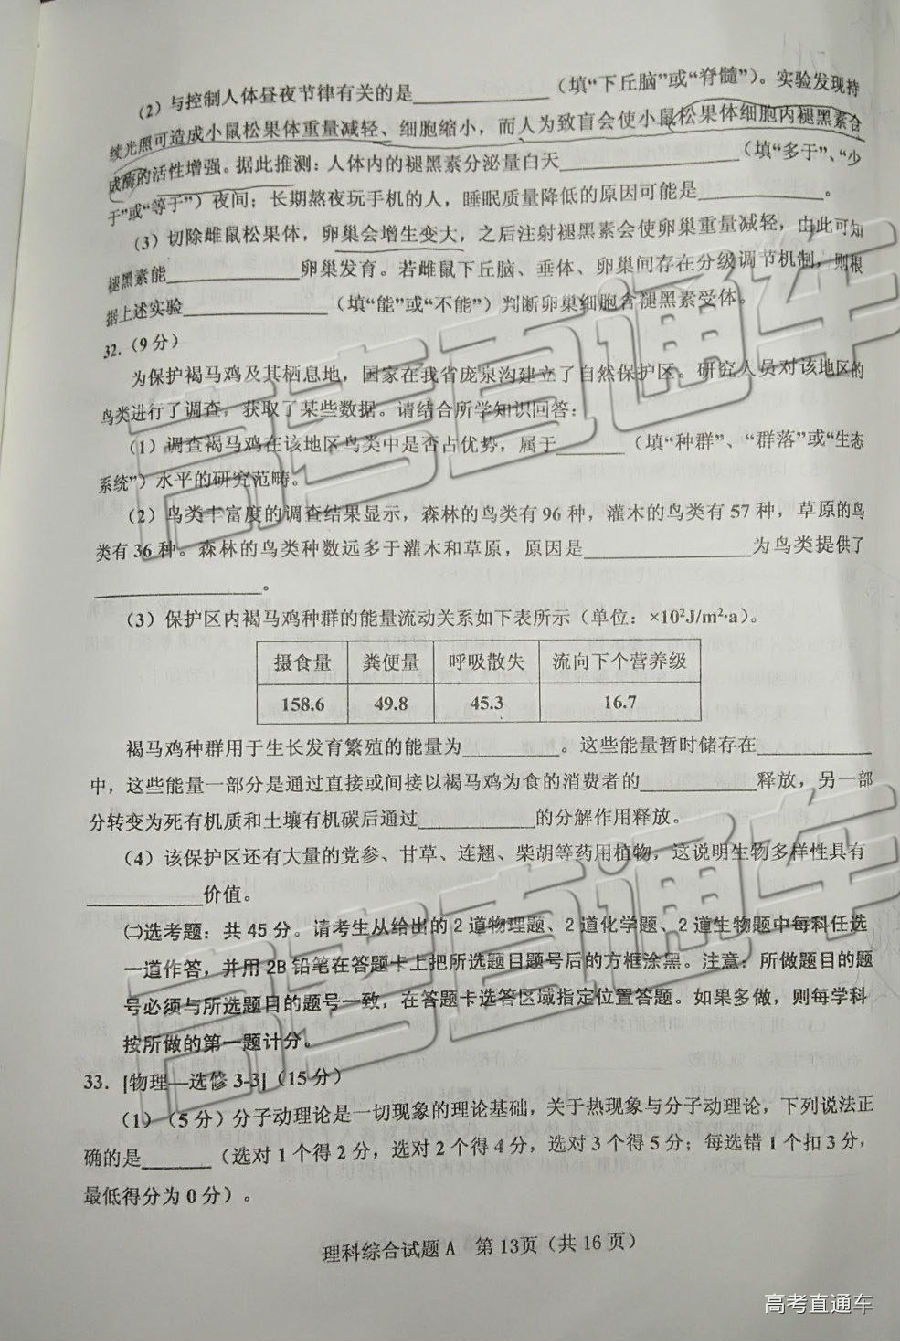 (2)与控制人体昼夜节律有关的是____________(填“下丘脑”或“脊髓”)。实验发现持
续光照可造成小鼠松果体重量减轻、细胞缩小,而人为致盲会使小鼠松果体细胞内褪黑素合
成酶的活性增强。据此推测:人体内的褪黑素分泌量白天____________(填“多于”、“少
于”或“等于”)夜间;长期熬夜玩手机的人,睡眠质量降低的原因可能是____________。
(3)切除雌鼠松果体,卵巢会增生变大,之后注射褪黑素会使卵巢重量减轻,由此可知
褪黑素能____________卵巢发育。若雌鼠下丘脑、垂体、卵巢间存在分级调节机制,则根
据上述实验____________(填“能”或“不能”)判断卵巢细胞含褪黑素受体。
32.(9分)
为保护褐马鸡及其栖息地,国家在我省庞泉沟建立了自然保护区。研究人员对该地区的
鸟类进行了调查,获取了某些数据。请结合所学知识回答:
(1)调查褐马鸡在该地区鸟类中是否占优势,属于______(填“种群”、“群落”或“生态
系统”)水平的研究范畴。
(2)鸟类丰富度的调查结果显示,森林的鸟类有96种,灌木的鸟类有57种,草原的鸟
类有36种。森林的鸟类种数远多于灌木和草原,原因是______________为鸟类提供了
______________。
(3)保护区内褐马鸡种群的能量流动关系如下表所示(单位:×10²J/m²·a)。
摄食量 粪便量 呼吸散失 流向下个营养级
158.6 49.8 45.3 16.7
褐马鸡种群用于生长发育繁殖的能量为________。这些能量暂时储存在__________
中,这些能量一部分是通过直接或间接以褐马鸡为食的消费者的__________释放,另一部
分转变为死有机质和土壤有机碳后通过__________的分解作用释放。
(4)该保护区还有大量的党参、甘草、连翘、柴胡等药用植物,这说明生物多样性具有
__________价值。
㈡选考题:共45分。请考生从给出的2道物理题、2道化学题、2道生物题中每科任选
一道作答,并用2B铅笔在答题卡上把所选题目题号后的方框涂黑。注意:所做题目的题
号必须与所选题目的题号一致,在答题卡选答区域指定位置答题。如果多做,则每学科
按所做的第一题计分。
33.[物理—选修3-3](15分)
(1)(5分)分子动理论是一切现象的理论基础,关于热现象与分子动理论,下列说法正
确的是______(选对1个得2分,选对2个得4分,选对3个得5分;每选错1个扣3分,
最低得分为0分)。
理科综合试题A 第13页(共16页)
高考直通车
高考直通车
高考直通车